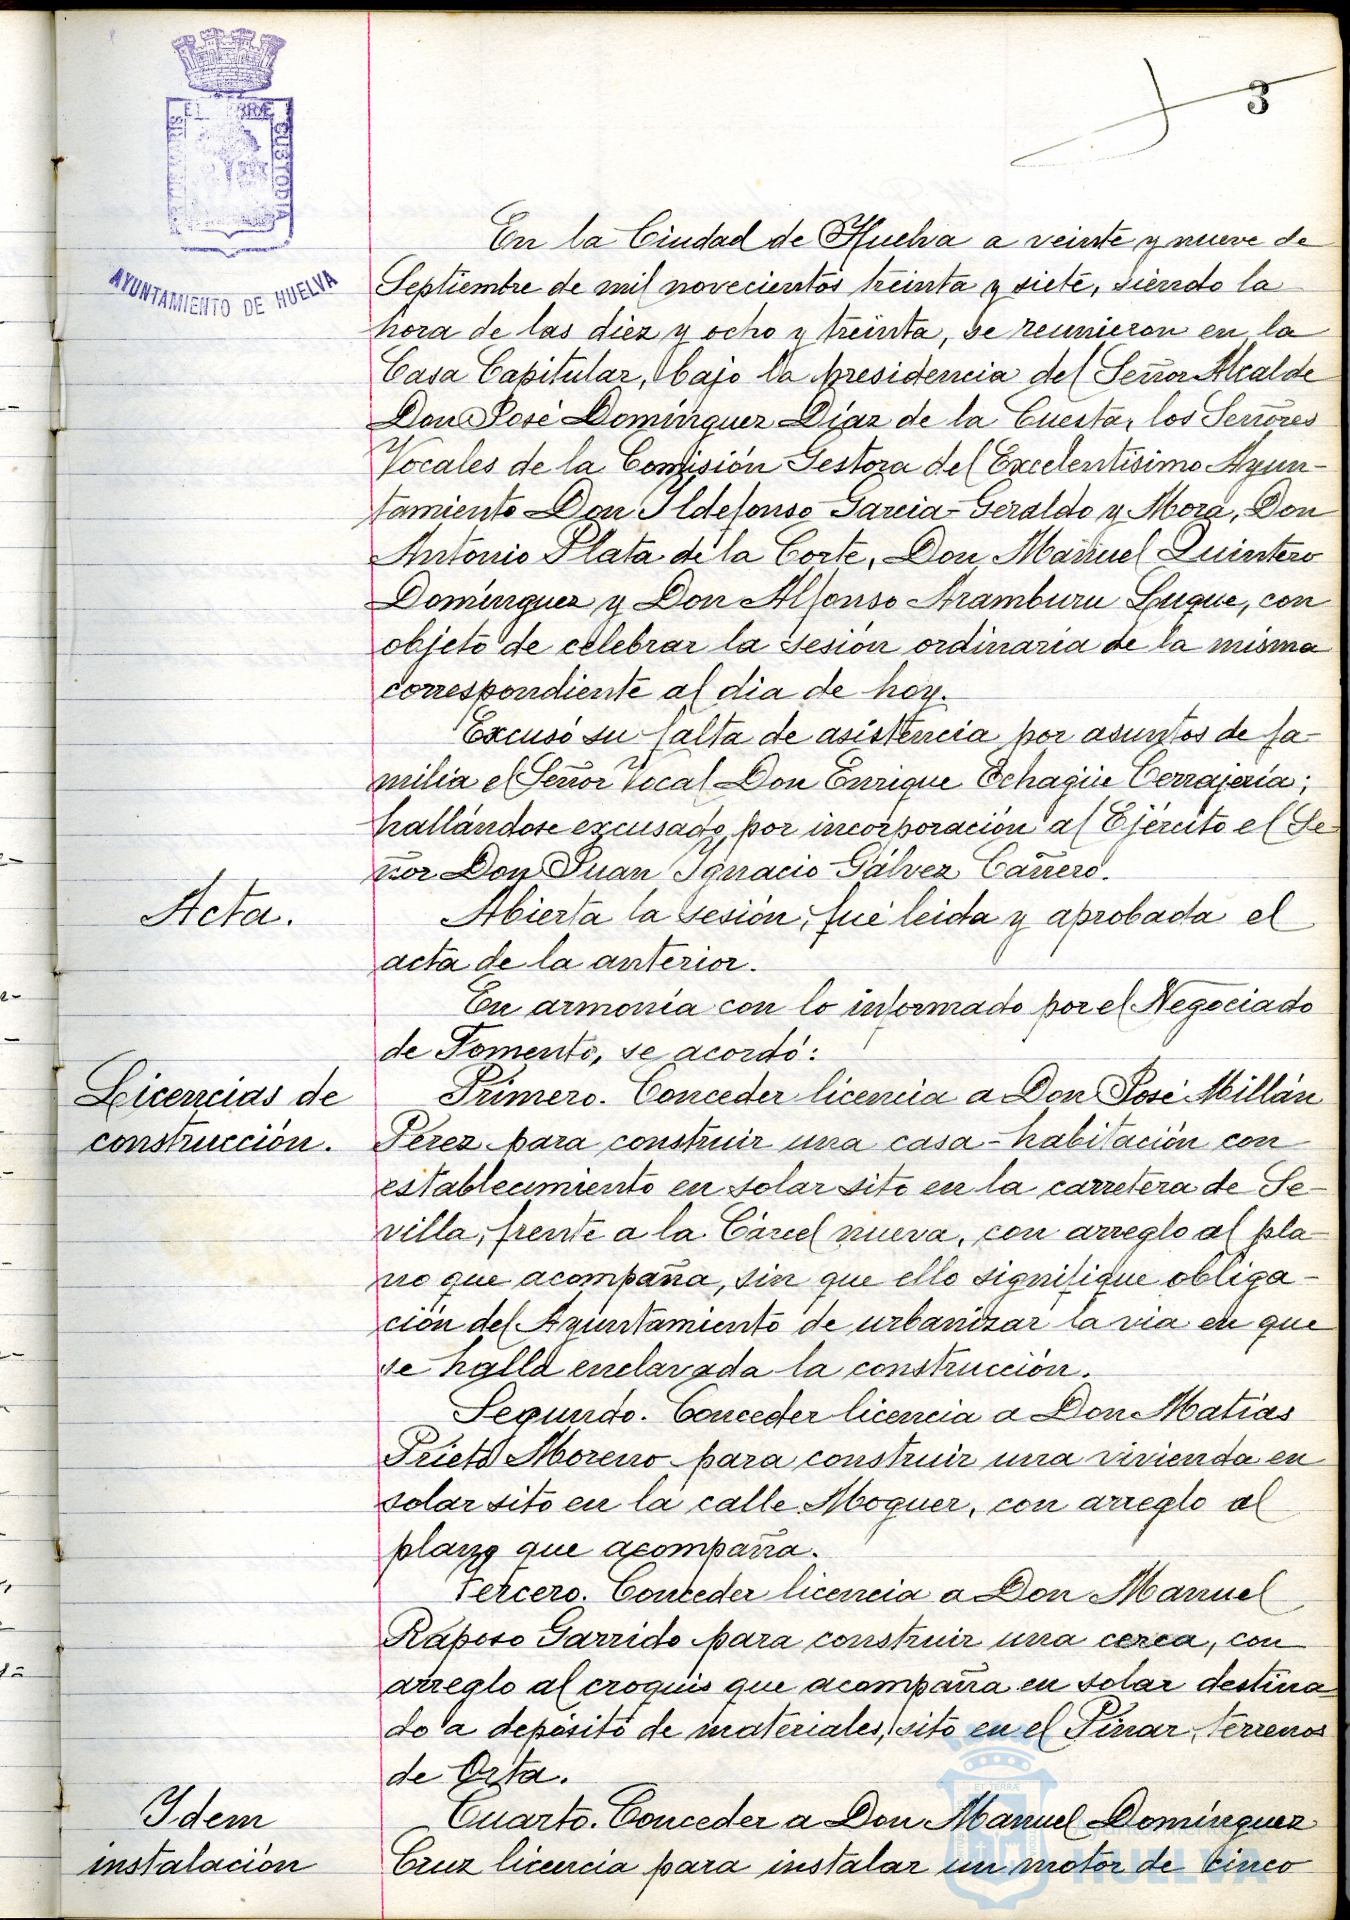 3
ET TERRÆ
CUSTODIA
AYUNTAMIENTO DE HUELVA
En la Ciudad de Huelva a veinte y nueve de
Septiembre de mil novecientos treinta y siete, siendo la
hora de las diez y ocho y treinta, se reunieron en la
Casa Capitular, bajo la presidencia del Señor Alcalde
Don José Domínguez Díaz de la Cuesta, los Señores
Vocales de la Comisión Gestora del Excelentísimo Ayun-
tamiento Don Ildefonso Garcia-Geraldo y Mora, Don
Antonio Plata de la Corte, Don Manuel Quintero
Domínguez y Don Alfonso Aramburu Luque, con
objeto de celebrar la sesión ordinaria de la misma
correspondiente al dia de hoy.
Excusó su falta de asistencia por asuntos de fa-
milia el Señor Vocal Don Enrique Echagüe Cerrajería;
hallándose excusado por incorporación al Ejército el Se-
ñor Don Juan Ignacio Gálvez Cañero.
Acta.
Abierta la sesión, fué leida y aprobada el
acta de la anterior.
En armonía con lo informado por el Negociado
de Fomento, se acordó:
Licencias de
construcción.
Primero. Conceder licencia a Don José Millán
Pérez para construir una casa-habitación con
establecimiento en solar sito en la carretera de Se-
villa, frente a la Cárcel nueva, con arreglo al pla-
no que acompaña, sin que ello signifique obliga-
ción del Ayuntamiento de urbanizar la via en que
se halla enclavada la construcción.
Segundo. Conceder licencia a Don Matías
Prieto Moreno para construir una vivienda en
solar sito en la calle Moguer, con arreglo al
plano que acompaña.
Tercero. Conceder licencia a Don Manuel
Raposo Garrido para construir una cerca, con
arreglo al croquis que acompaña en solar destina
do a depósito de materiales, sito en el Pinar, terrenos
de Orta.
Idem
instalación
Cuarto. Conceder a Don Manuel Domínguez
Cruz licencia para instalar un motor de cinco
ET TERRÆ
Ayuntamiento de
HUELVA